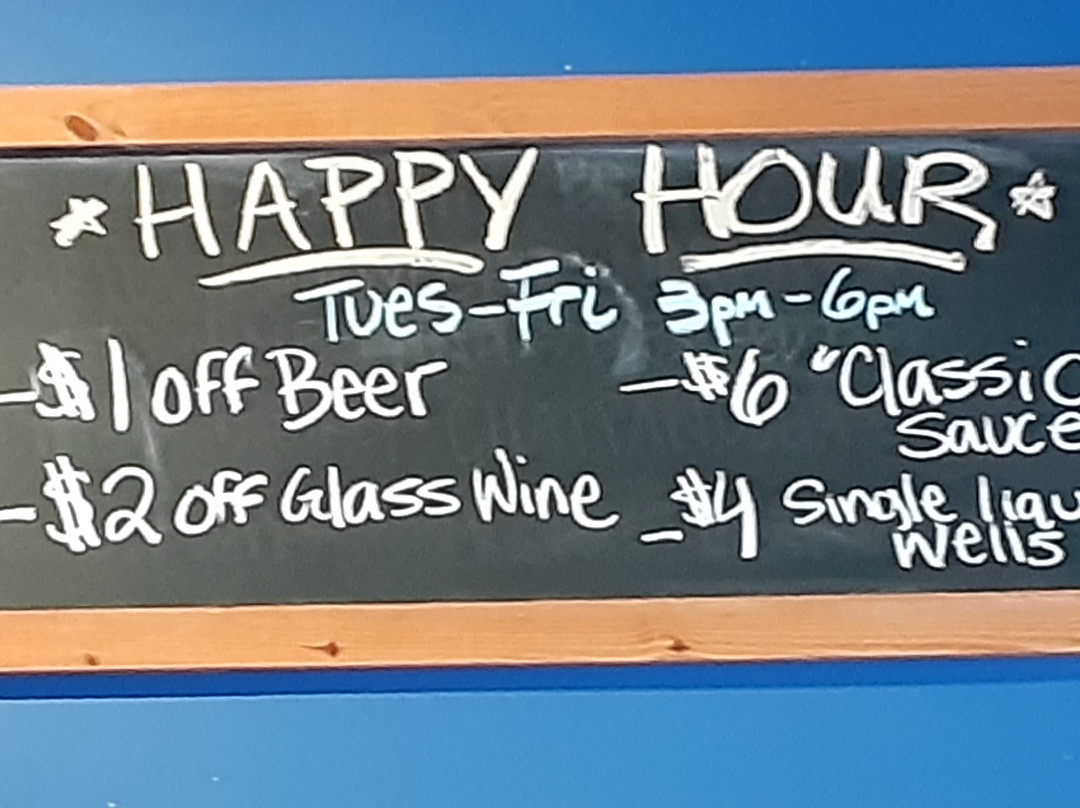 * HAPPY HOUR *
Tues-Fri 3pm-6pm
-$1 off Beer
-$2 off Glass Wine
-$6 "Classic
Sauce
-$4 Single liqu
Wells